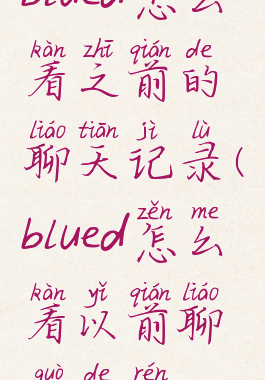 blued怎么
kàn zhī qián de
看之前的
liáo tiān jì lù
聊天记录(
zěn me
blued怎么
kàn yǐ qián liáo
看以前聊
guò de rén